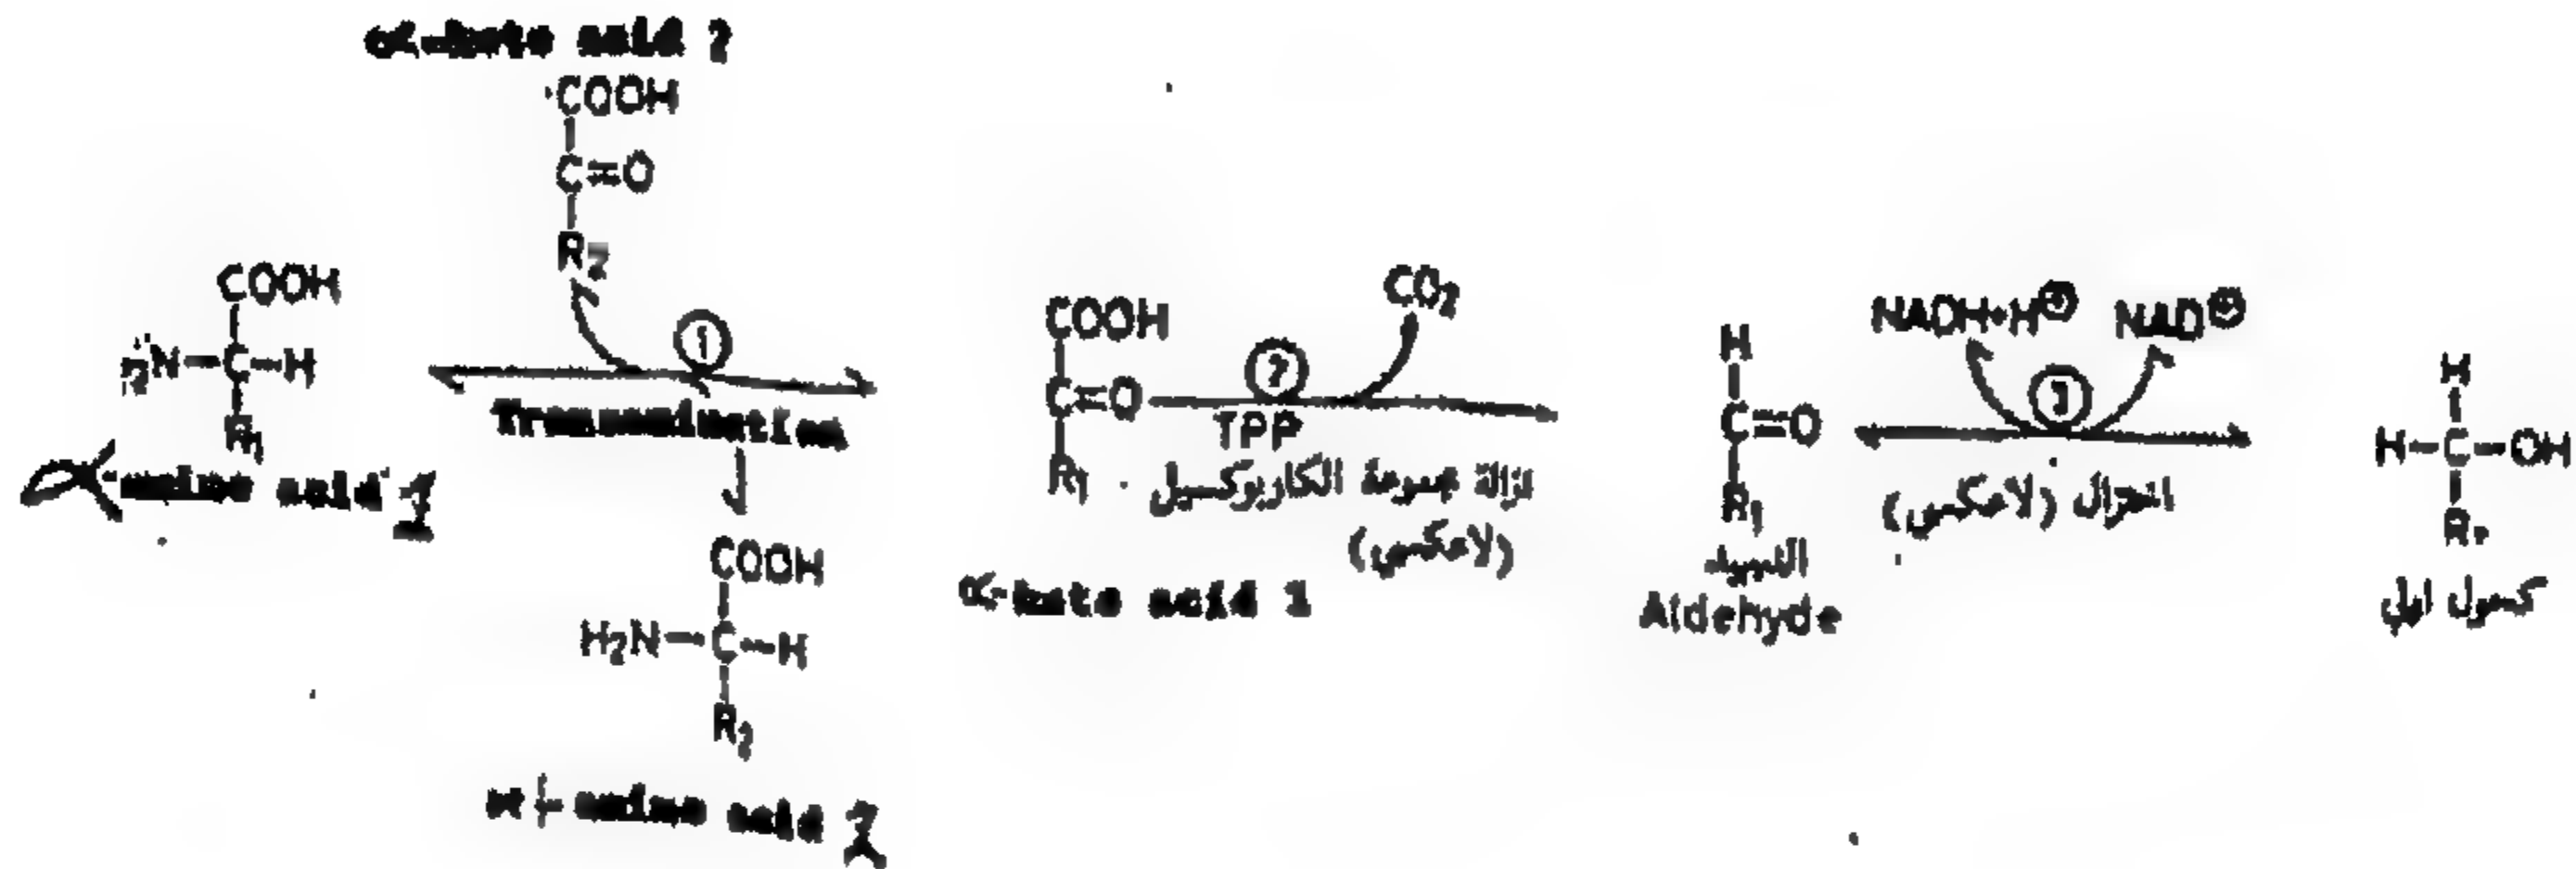 α-keto acid 2
COOH
C=O
R2
COOH
H2N-C-H
R1
α-amino acid 1
1
Transamination
COOH
H2N-C-H
R2
α-amino acid 2
COOH
C=O
R1
α-keto acid 1
CO2
2
TPP
ازالة مجموعة الكاربوكسيل
(لاعكسي)
H
C=O
R1
Aldehyde
NADH+H+
NAD+
3
اختزال (لاعكسي)
H
H-C-OH
كحول اولي